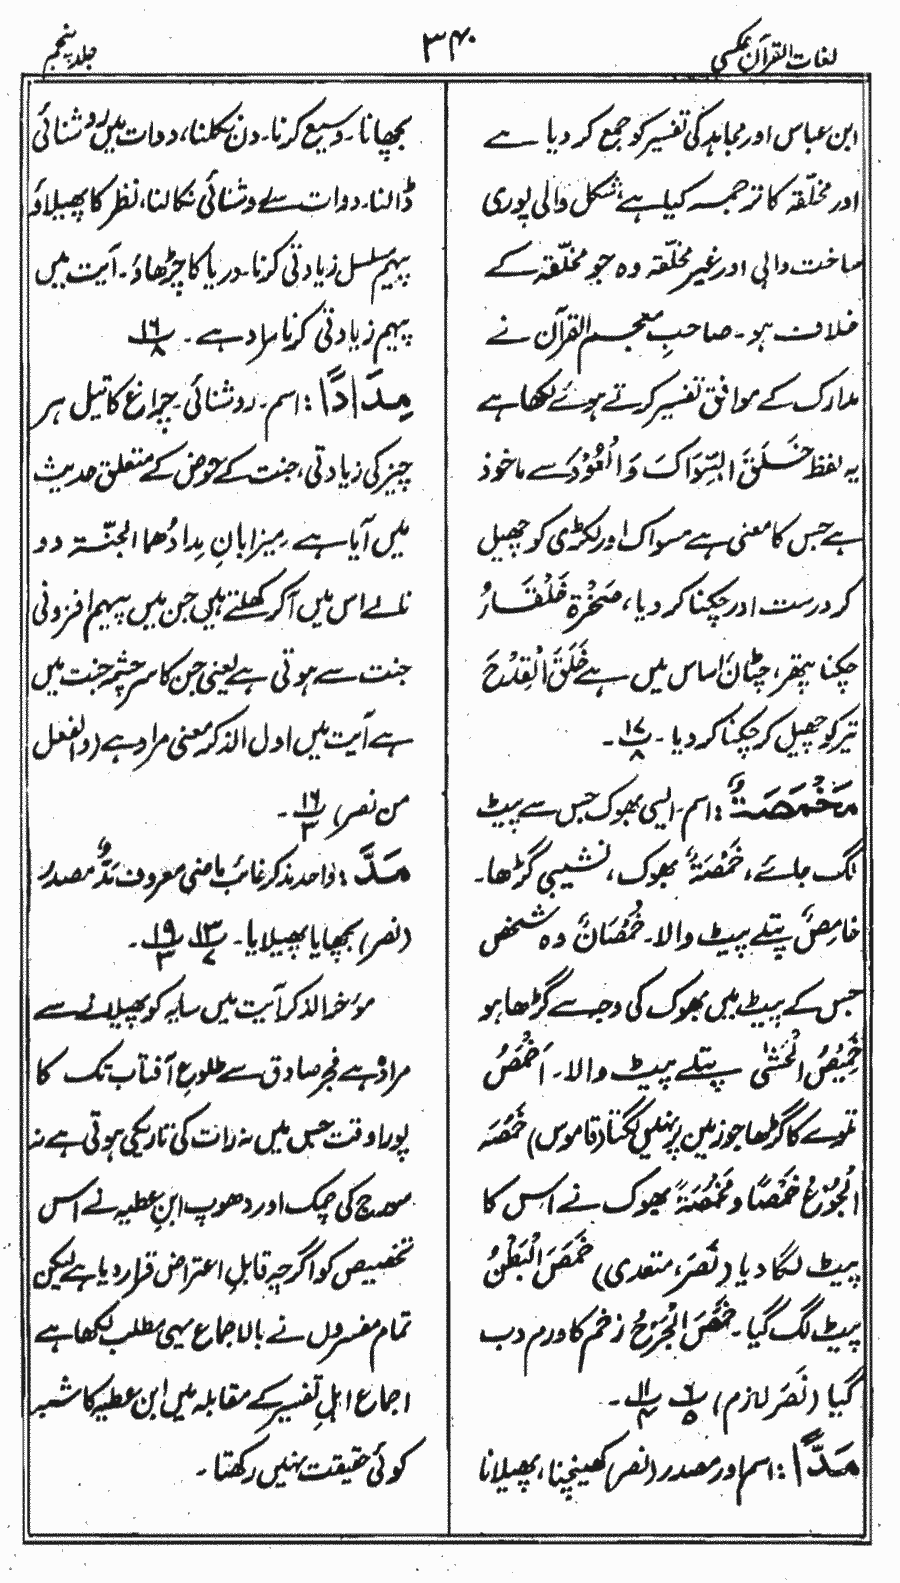 لغات القرآن عکسی
۳۴۰
جلد پنجم
ابن عباس اور مجاہد کی تفسیر کو جمع کر دیا ہے
اور مخلّقہ کا ترجمہ کیا ہے شکل والی پوری
ساخت والی اور غیر مخلّقہ وہ جو مخلّقہ کے
خلاف ہو۔ صاحبِ معجم القرآن نے
مدارک کے موافق تفسیر کرتے ہوئے لکھا ہے
یہ لفظ خَلَقَ السِّوَاکَ وَالْعُوْدَ سے ماخوذ
ہے جس کا معنی ہے مسواک اور لکڑی کو چھیل
کر درست اور چکنا کر دیا، صَخْرَۃ خَلْقَــاءُ
چکنا پتھر، چٹان اساس میں ہے خَلَقَ الْقِدْحَ
تیر کو چھیل کر چکنا کر دیا ۔ ۱۷/۸ ۔
مَخْمَصَۃٌ : اسم۔ ایسی بھوک جس سے پیٹ
لگ جائے، خَمْصَۃٌ بھوک، نشیبی گڑھا۔
خامِصٌ پتلے پیٹ والا۔ خُمْصَانٌ وہ شخص
جس کے پیٹ میں بھوک کی وجہ سے گڑھا ہو
خَمِیْصُ الْحَشٰی پتلے پیٹ والا۔ اَخْمَصُ
تلوے کا گڑھا جو زمین پر نہیں لگتا (قاموس) خَمَصَہ
الْجُوْعُ خَمْصًا و مَخْمَصَۃً بھوک نے اس کا
پیٹ لگا دیا (نَصَرَ، متعدی) خَمَصَ الْبَطْنُ
پیٹ لگ گیا۔ خَمَصَ الْجُرْحُ زخم کا ورم دب
گیا (نَصَرَ لازم) ۶/۵ ۱۱/۴ ۔
مَدًّا : اسم اور مصدر (نصر) کھینچنا، پھیلانا
بچھانا ۔ وسیع کرنا۔ دن نکلنا، دوات میں روشنائی
ڈالنا۔ دوات سے روشنائی نکالنا، نظر کا پھیلاؤ
پیہم مسلسل زیادتی کرنا۔ دریا کا چڑھاؤ۔ آیت میں
پیہم زیادتی کرنا مراد ہے ۔ ۱۶/۸
مِدَادًا : اسم۔ روشنائی۔ چراغ کا تیل ہر
چیز کی زیادتی، جنت کے حوض کے متعلق حدیث
میں آیا ہے ۔ میزابانِ مِدادُهما الجنّـــۃ دو
نالے اس میں آکر کھلتے ہیں جن میں پیہم افزونی
جنت سے ہوتی ہے یعنی جن کا سرچشمہ جنت میں
ہے آیت میں اول الذکر معنی مراد ہے (والفعل
من نصر) ۱۶/۳ ۔
مَدَّ : واحد مذکر غائب ماضی معروف مَدٌّ مصدر
(نصر) بچھایا پھیلایا۔ ۱۳/۷ ۱۹/۳ ۔
مؤخر الذکر آیت میں سایہ کو پھیلانے سے
مراد ہے فجر صادق سے طلوعِ آفتاب تک کا
پورا وقت جس میں نہ رات کی تاریکی ہوتی ہے نہ
سورج کی چمک اور دھوپ ابنِ عطیہ نے اس
تخصیص کو اگرچہ قابلِ اعتراض قرار دیا ہے لیکن
تمام مفسروں نے بالاجماع یہی مطلب لکھا ہے
اجماع اہلِ تفسیر کے مقابلہ میں ابن عطیہ کا شبہ
کوئی حقیقت نہیں رکھتا ۔